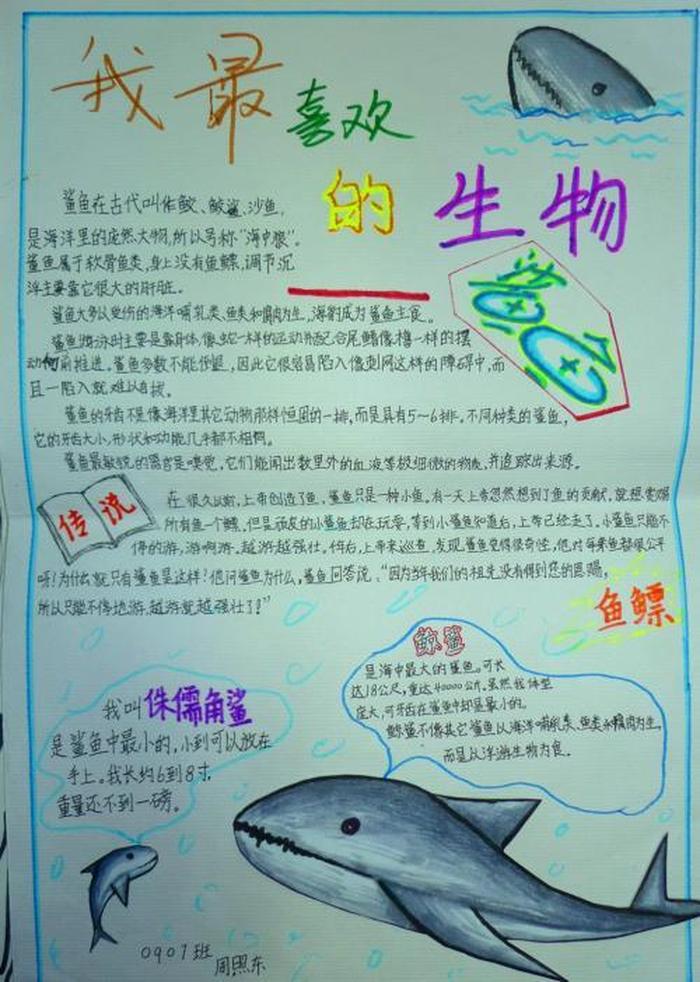 我最喜欢
的生物
鲨鱼在古代叫作鲛、鲛鲨、沙鱼,
是海洋里的庞然大物,所以号称“海中狼”。
鲨鱼属于软骨鱼类,身上没有鱼鳔,调节沉
浮主要靠它很大的肝脏。
鲨鱼大多以受伤的海洋哺乳类、鱼类和腐肉为生,海豹成为鲨鱼主食。
鲨鱼游泳时主要是靠身体,像蛇一样的运动并配合尾鳍像橹一样的摆
动向前推进。鲨鱼多数不能倒退,因此它很容易陷入像刺网这样的障碍中,而
且一陷入就难以自拔。
鲨鱼的牙齿不是像海洋里其它动物那样恒固的一排,而是具有5~6排。不同种类的鲨鱼,
它的牙齿大小,形状和功能几乎都不相同。
鲨鱼最敏锐的器官是嗅觉,它们能闻出数里外的血液等极细微的物质,并追踪出来源。
传说
在很久以前,上帝创造了鱼,鲨鱼只是一种小鱼。有一天上帝忽然想到了鱼的贡献,就想赏赐
所有鱼一个鳔。但是顽皮的小鲨鱼却在玩耍,等到小鲨鱼知道后,上帝已经走了。小鲨鱼只能不
停的游,游啊游,越游越强壮。后,上帝来巡查,发现鲨鱼觉得很奇怪,他对每条鱼都很公平
呀!为什么就只有鲨鱼是这样!他问鲨鱼为什么,鲨鱼回答说,“因为当年我们的祖先没有得到您的恩赐,
所以只能不停地游,越游就越强壮了!”
鱼鳔
鲸鲨
是海中最大的鲨鱼。可长
达18公尺,重达40000公斤。虽然我体型
庞大,可牙齿在鲨鱼中却是最小的。
鲸鲨不像其它鲨鱼以海洋哺乳类、鱼类和腐肉为生,
而是以浮游生物为食。
我叫侏儒角鲨
是鲨鱼中最小的,小到可以放在
手上。我长约6到8寸,
重量还不到一磅。
0907班
周照东